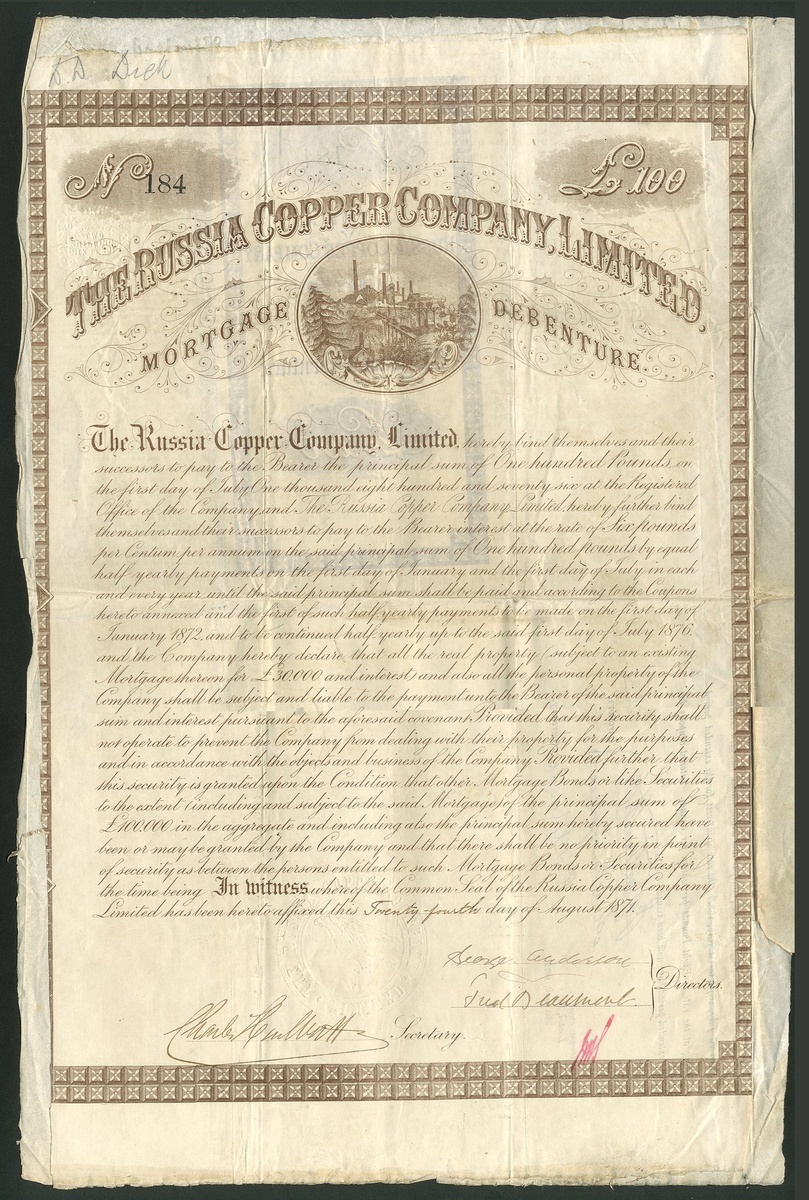 D. D. Dick
No 184
£100
THE RUSSIA COPPER COMPANY, LIMITED.
MORTGAGE DEBENTURE.
The Russia Copper Company, Limited, hereby bind themselves and their
successors to pay to the Bearer the principal sum of One hundred Pounds, on
the first day of July One thousand eight hundred and seventy six at the Registered
Office of the Company and The Russia Copper Company Limited, hereby further bind
themselves and their successors to pay to the Bearer interest at the rate of Six pounds
per Centum per annum on the said principal sum of One hundred pounds by equal
half yearly payments on the first day of January and the first day of July in each
and every year until the said principal sum shall be paid and according to the Coupons
hereto annexed and the first of such half yearly payments to be made on the first day of
January 1872, and to be continued half yearly up to the said first day of July 1876.
and the Company hereby declare that all the real property (subject to an existing
Mortgage thereon for £30,000 and interest) and also all the personal property of the
Company shall be subject and liable to the payment unto the Bearer of the said principal
sum and interest pursuant to the aforesaid covenant Provided that this security shall
not operate to prevent the Company from dealing with their property for the purposes
and in accordance with the objects and business of the Company Provided further that
this security is granted upon the Condition that other Mortgage Bonds or like Securities
to the extent (including and subject to the said Mortgage) of the principal sum of
£100,000 in the aggregate and including also the principal sum hereby secured have
been or may be granted by the Company and that there shall be no priority in point
of security as between the persons entitled to such Mortgage Bonds or Securities for
the time being In witness whereof the Common Seal of the Russia Copper Company
Limited has been hereto affixed this Twenty fourth day of August 1871.
George Anderson
Fred Beaumont
Directors.
Charles
Secretary.